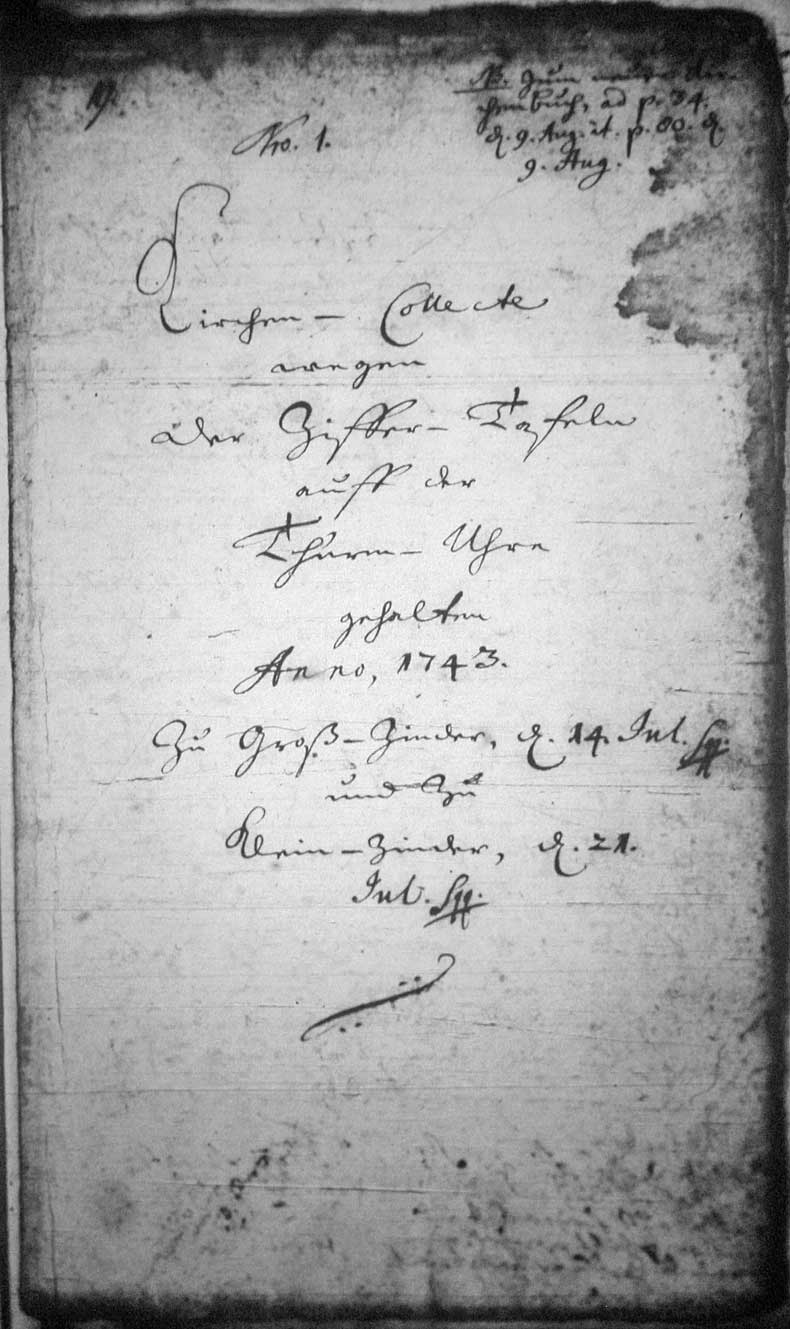 19.
NB. Zum neuen Kir-
chenbuch, ad p. 34.
d. 9. Aug. it. p. 80. d.
9. Aug.
No. 1.
Kirchen- Collecte
wegen
der Ziffer- Tafeln
auff der
Thurm- Uhre
gehalten
Anno, 1743.
Zu Groß-Zünder, d. 14. Jul.
und Zu
Klein-Zünder, d. 21.
Jul.